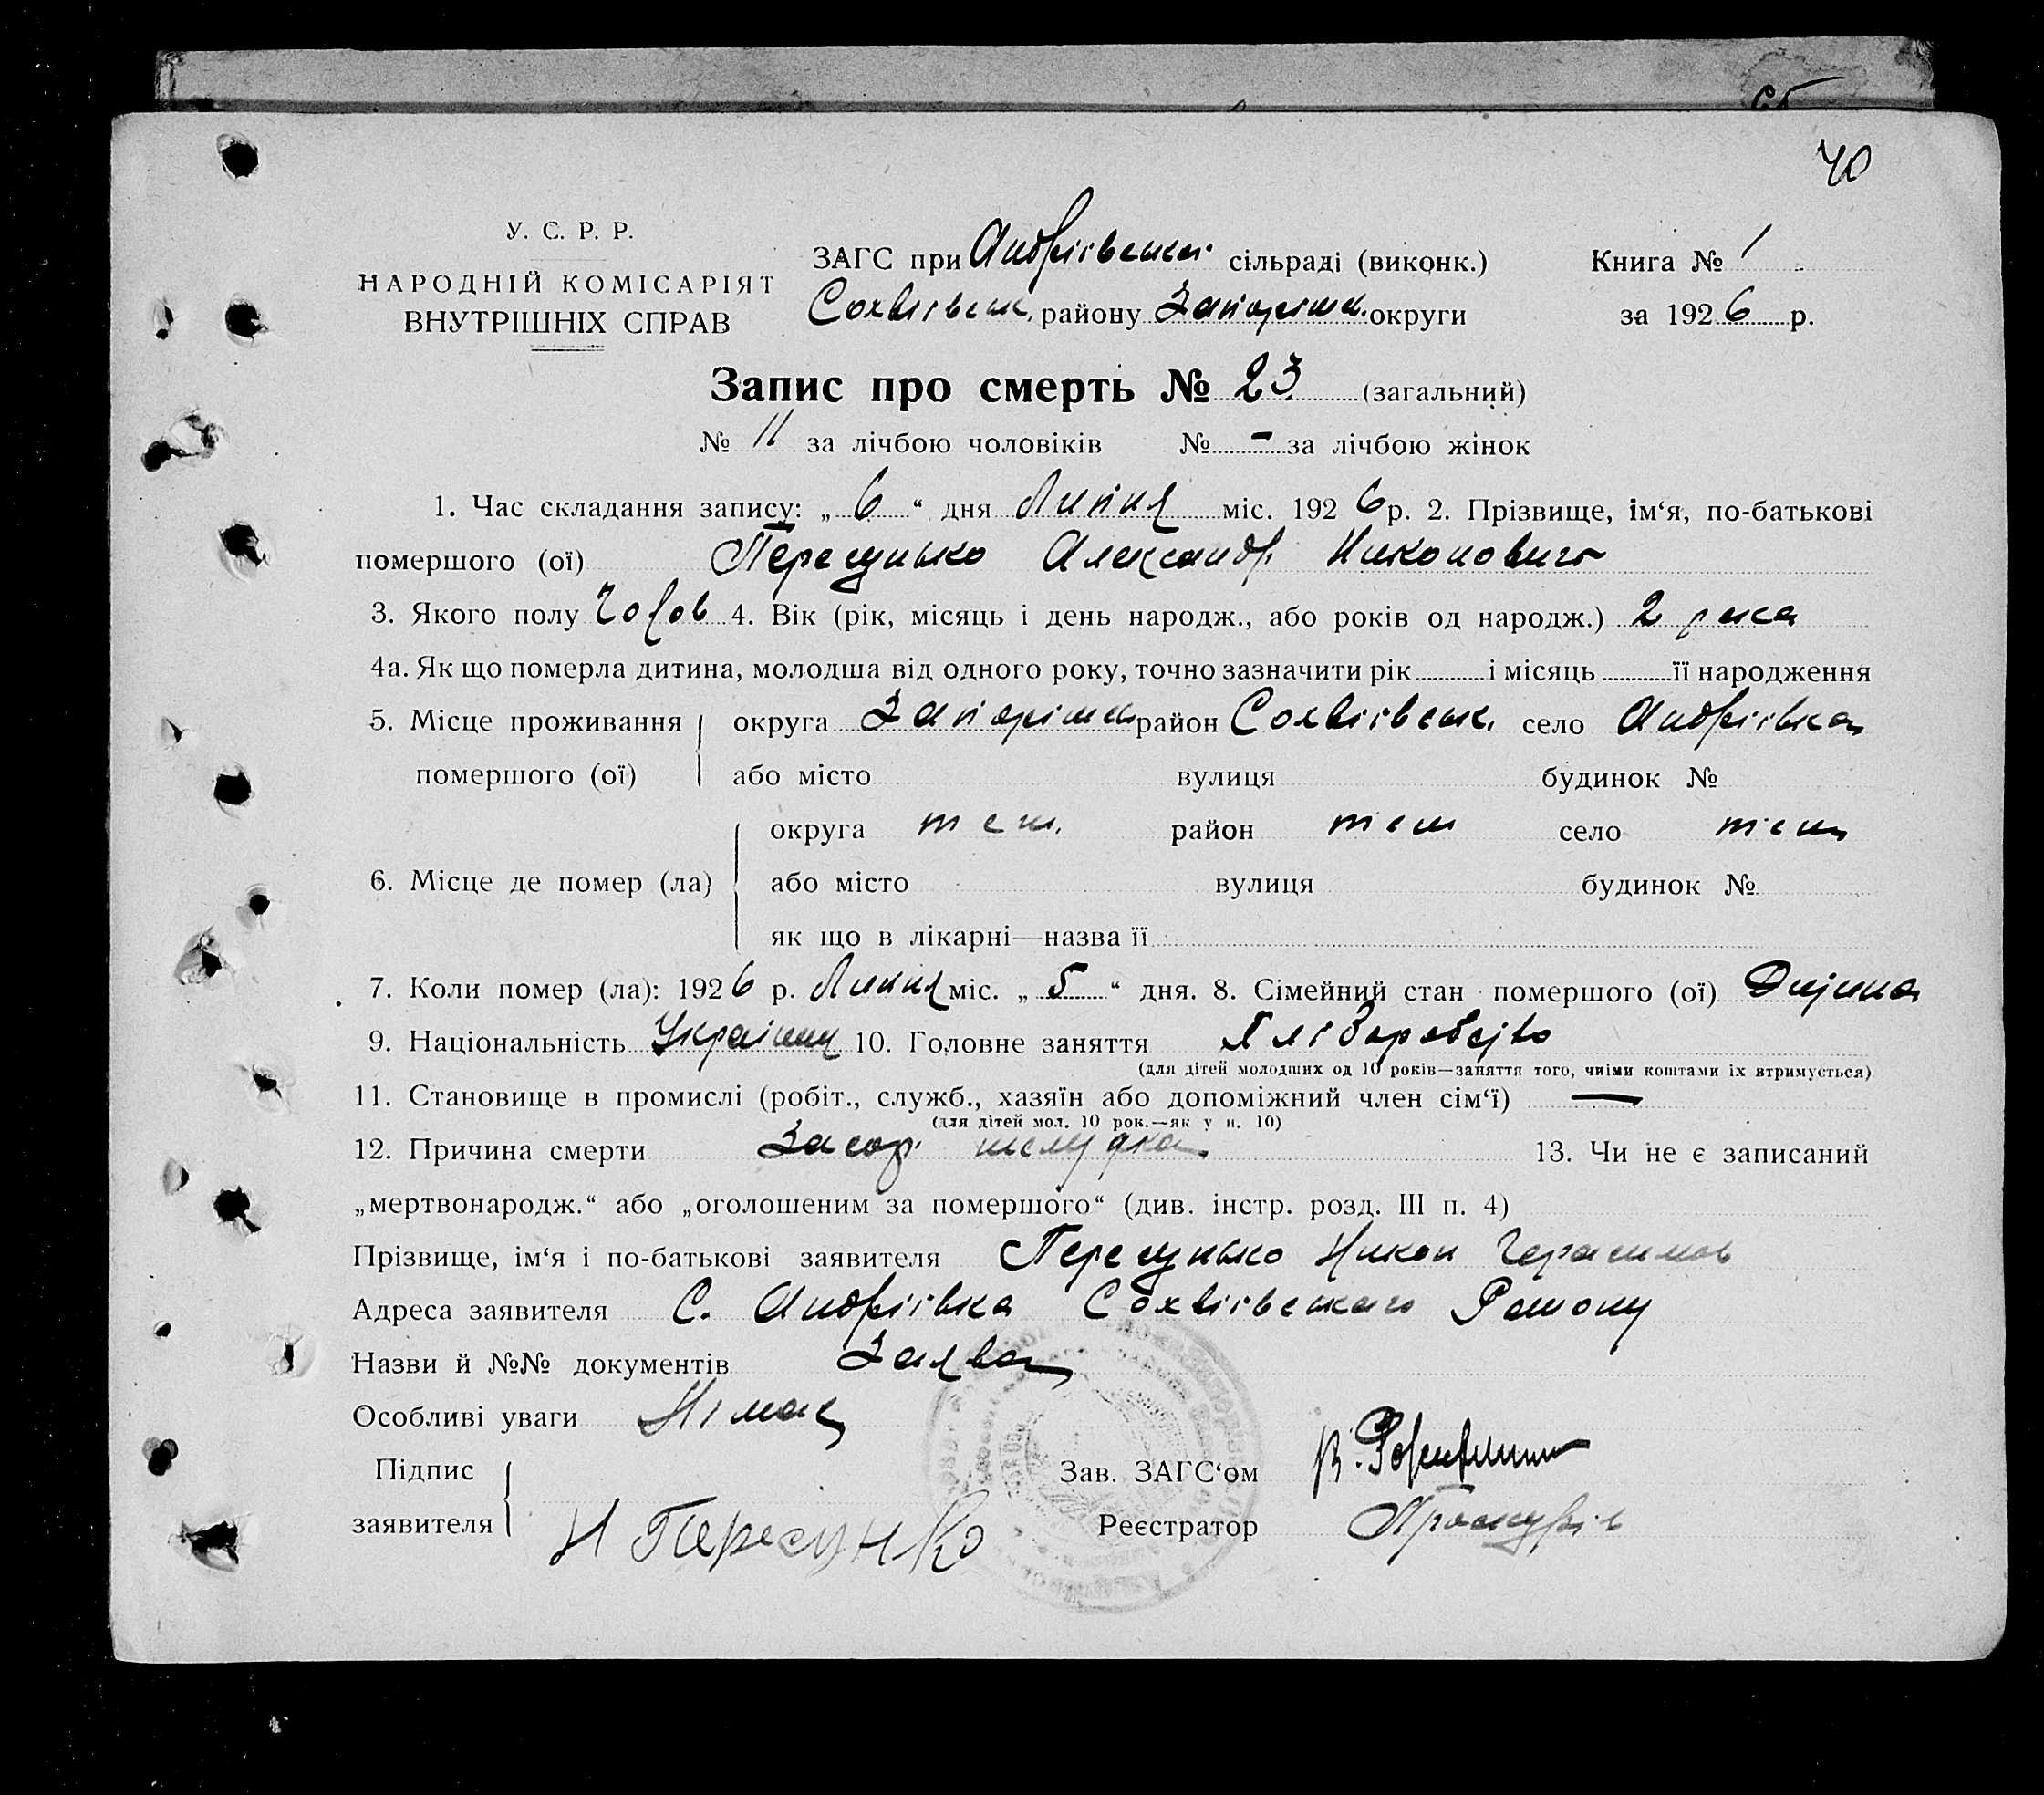 40
У. С. Р. Р.
НАРОДНІЙ КОМІСАРІЯТ
ВНУТРІШНІХ СПРАВ
ЗАГС при Андріівській сільраді (виконк.) Книга № 1
Софіівськ. району Запоріжж. округи за 1926 р.
Запис про смерть № 23 (загальний)
№ 11 за лічбою чоловіків № - за лічбою жінок
1. Час складання запису: „ 6 “ дня Липня міс. 1926 р. 2. Прізвище, ім‘я, по-батькові
помершого (ої) Пересунько Александр Никонович
3. Якого полу Чолов 4. Вік (рік, місяць і день народж., або років од народж.) 2 рока
4а. Як що померла дитина, молодша від одного року, точно зазначити рік і місяць її народження
5. Місце проживання округа район Софіівськ. село Андріівка
помершого (ої) або місто вулиця будинок №
округа теж. район теж село теж
6. Місце де помер (ла) або місто вулиця будинок №
як що в лікарні—назва її
7. Коли помер (ла): 1926 р. Липня міс. „ 5 “ дня. 8. Сімейний стан помершого (ої) Дитина
9. Національність 10. Головне заняття Хліборобство
(для дітей молодших од 10 років—заняття того, чиїми коштами їх втримується)
11. Становище в промислі (робіт., служб., хазяїн або допоміжний член сім‘ї) —
(для дітей мол. 10 рок.—як у п. 10)
12. Причина смерти Засор. желудка 13. Чи не є записаний
„мертвонародж.“ або „оголошеним за помершого“ (див. інстр. розд. III п. 4)
Прізвище, ім‘я і по-батькові заявителя Пересунько Никон Герасимов
Адреса заявителя С. Андріівка Софіівського Району
Назви й №№ документів Заява
Особливі уваги Німає
Підпис
заявителя Н Пересунко
Зав. ЗАГС‘ом
Реєстратор